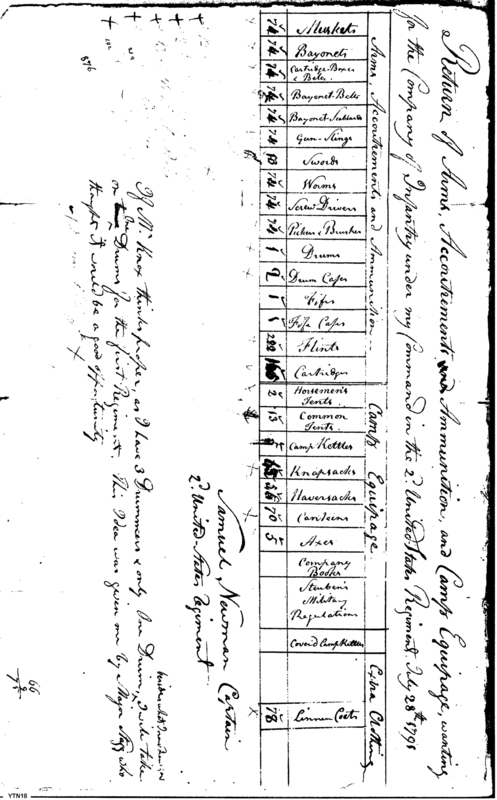 Return of Arms, Accoutrements and Ammunition, and Camp Equipage, wanting
for the Company of Infantry under my Command in the 2d. United States Regiment July 28th 1791
Arms, Accoutrements and Ammunition.
Camp Equipage
Extra Clothing
Muskets 74
Bayonets 74
Cartridge-Boxes & Belts. 74
Bayonet-Belts 74
Bayonet-Scabbards 74
Gun-Slings 74
Swords
Worms 74
Screw Drivers 74
Pickers & Brushes 74
Drums 1
Drum Cases 2
Fifes 1
Fife Cases 1
Flints 222
Cartridges
Horsemen's Tents. 2
Common Tents. 13
Camp Kettles
Knapsacks
Haversacks
Canteens 70
Axes 5
Company Books
Steuben's Military Regulations
Cover'd Camp Kettles
Linnen Coats 78
Samuel Newman Captain
2d. United-States Regiment
If Mr. Knox thinks proper, as I have 3 Drummers & only One Drum, I will take
on Drums for the first Regiment. This Idea was given me by Major Stagg who
thought it would be a good opportunity
876
66
YTN18